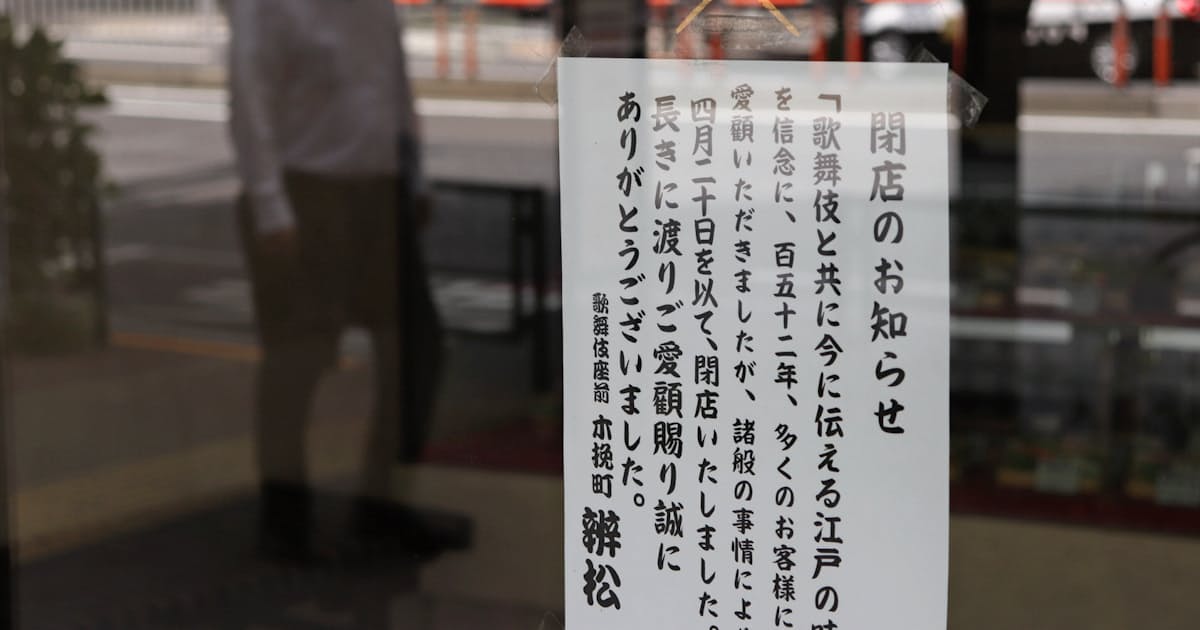 閉店のお知らせ
「歌舞伎と共に今に伝える江戸の
を信念に、百五十二年、多くのお客様に
愛顧いただきましたが、諸般の事情により
四月二十日を以て、閉店いたしました。
長きに渡りご愛顧賜り誠に
ありがとうございました。
歌舞伎座前 木挽町 辨松